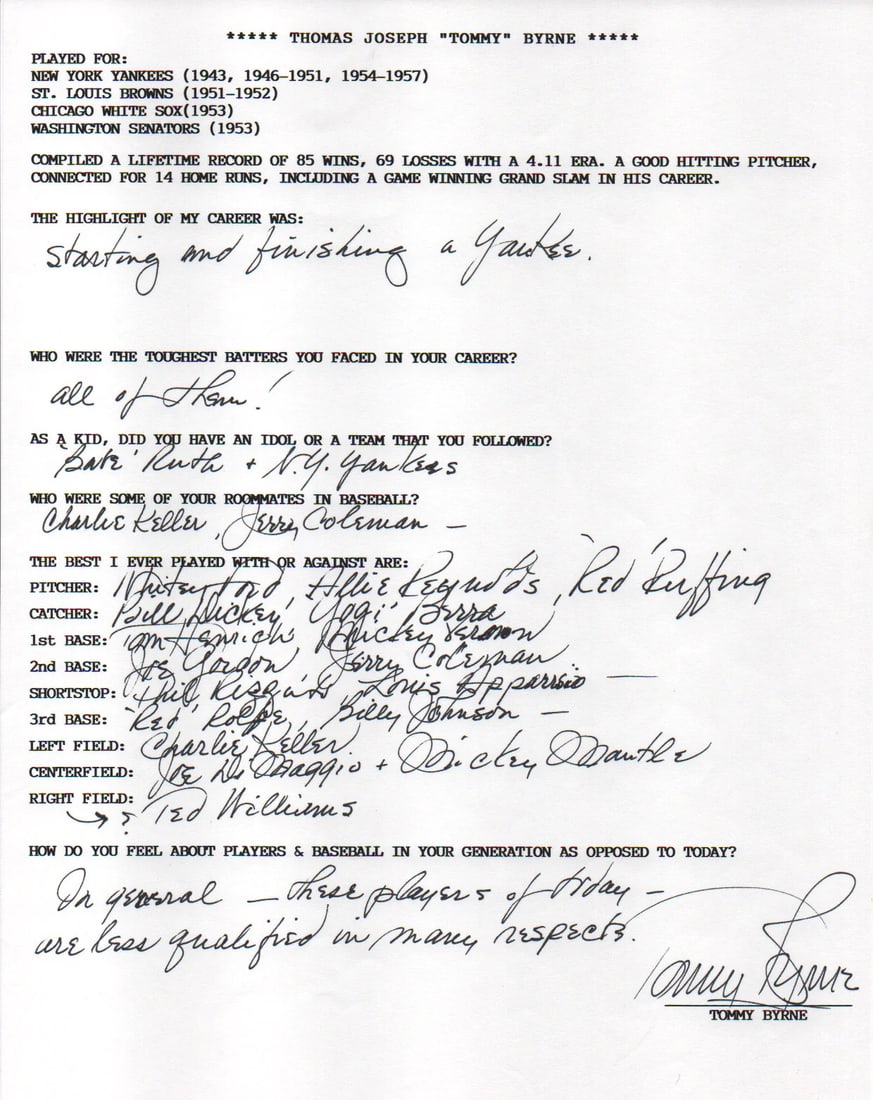 ***** THOMAS JOSEPH "TOMMY" BYRNE *****
PLAYED FOR:
NEW YORK YANKEES (1943, 1946-1951, 1954-1957)
ST. LOUIS BROWNS (1951-1952)
CHICAGO WHITE SOX(1953)
WASHINGTON SENATORS (1953)
COMPILED A LIFETIME RECORD OF 85 WINS, 69 LOSSES WITH A 4.11 ERA. A GOOD HITTING PITCHER,
CONNECTED FOR 14 HOME RUNS, INCLUDING A GAME WINNING GRAND SLAM IN HIS CAREER.
THE HIGHLIGHT OF MY CAREER WAS:
starting and finishing a Yankee.
WHO WERE THE TOUGHEST BATTERS YOU FACED IN YOUR CAREER?
all of them!
AS A KID, DID YOU HAVE AN IDOL OR A TEAM THAT YOU FOLLOWED?
'Babe' Ruth + N.Y. Yankees
WHO WERE SOME OF YOUR ROOMMATES IN BASEBALL?
Charlie Keller, Jerry Coleman —
THE BEST I EVER PLAYED WITH OR AGAINST ARE:
PITCHER: Whitey Ford, Allie Reynolds, 'Red' Ruffing
CATCHER: Bill Dickey, 'Yogi' Berra
1st BASE: Tom Henrich, Mickey Vernon
2nd BASE: Joe Gordon, Jerry Coleman
SHORTSTOP: Phil Rizzuto, Louis Apparisio —
3rd BASE: 'Red' Rolfe, Billy Johnson —
LEFT FIELD: Charlie Keller
CENTERFIELD: Joe DiMaggio + Mickey Mantle
RIGHT FIELD:
Ted Williams
HOW DO YOU FEEL ABOUT PLAYERS & BASEBALL IN YOUR GENERATION AS OPPOSED TO TODAY?
In general — these players of today —
are less qualified in many respects.
Tommy Byrne
TOMMY BYRNE